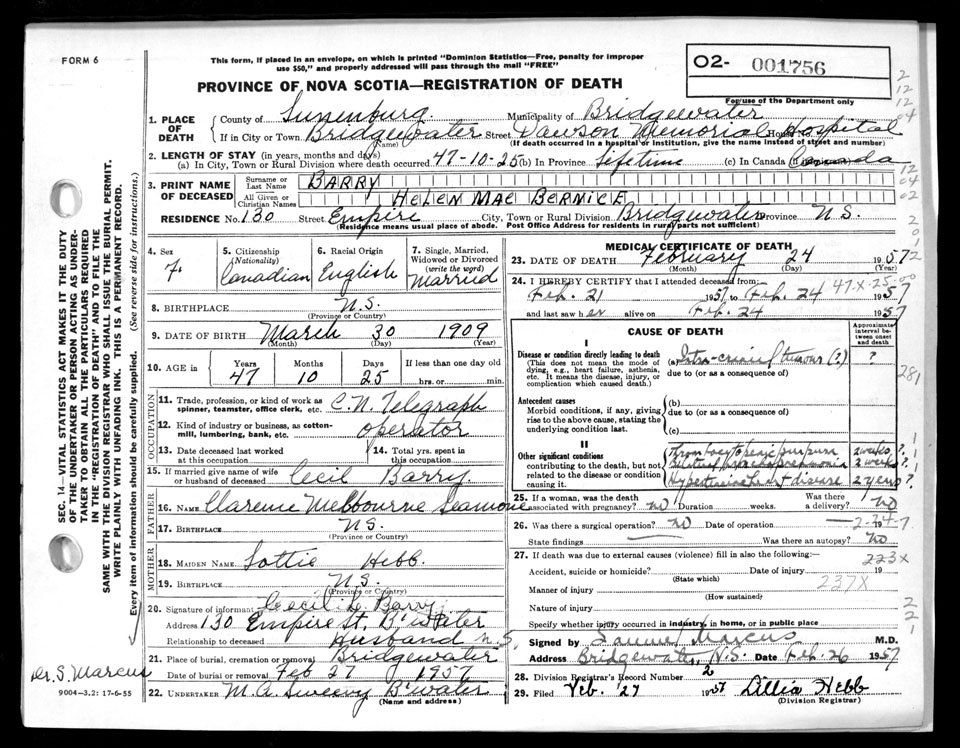 FORM 6
This form, if placed in an envelope, on which is printed "Dominion Statistics—Free, penalty for improper
use $50," and properly addressed will pass through the mail "FREE"
O2- 001756
For use of the Department only
PROVINCE OF NOVA SCOTIA—REGISTRATION OF DEATH
1. PLACE OF DEATH
County of Lunenburg Municipality of Bridgewater
If in City or Town Bridgewater Street Dawson Memorial House No. Hospital
(Name) (If death occurred in a hospital or institution, give the name instead of street and number)
2. LENGTH OF STAY (in years, months and days)
(a) In City, Town or Rural Division where death occurred 47-10-25 (b) In Province Lifetime (c) In Canada (if Canada
3. PRINT NAME OF DECEASED
Surname or Last Name BARRY
All Given or Christian Names HELEN MAE BERNICE
RESIDENCE No. 130 Street Empire City, Town or Rural Division Bridgewater Province N.S.
(Residence means usual place of abode. Post Office Address for residents in rural parts not sufficient)
4. Sex F.
5. Citizenship (Nationality) Canadian
6. Racial Origin English
7. Single, Married, Widowed or Divorced (write the word) Married
8. BIRTHPLACE N.S.
(Province or Country)
9. DATE OF BIRTH March 30 1909
(Month) (Day) (Year)
10. AGE in Years Months Days If less than one day old
47 10 25 hrs. or min.
OCCUPATION
11. Trade, profession, or kind of work as spinner, teamster, office clerk, etc. C.N. Telegraph
12. Kind of industry or business, as cotton-mill, lumbering, bank, etc. operator
13. Date deceased last worked at this occupation
14. Total yrs. spent in this occupation
15. If married give name of wife or husband of deceased Cecil Barry
FATHER
16. NAME Clarence Melbourne Seamone
17. BIRTHPLACE N.S.
(Province or Country)
MOTHER
18. MAIDEN NAME Lottie Hebb.
19. BIRTHPLACE N.S.
(Province or Country)
20. Signature of informant Cecil L. Barry
Address 130 Empire St. B'water
Relationship to deceased Husband N.S.
21. Place of burial, cremation or removal Bridgewater
Date of burial or removal Feb 27 1957
22. UNDERTAKER M.A. Sweeny B'water
(Name and address)
MEDICAL CERTIFICATE OF DEATH
23. DATE OF DEATH February 24 1957
(Month) (Day) (Year)
24. I HEREBY CERTIFY that I attended deceased from: 47-X-25-00
Feb. 21 1957 to Feb. 24 1957
and last saw her alive on Feb. 24 1957
CAUSE OF DEATH
Approximate interval between onset and death
I
Disease or condition directly leading to death
(This does not mean the mode of dying, e.g., heart failure, asthenia, etc. It means the disease, injury, or complication which caused death.)
(a) Intra-cranial tumour (?) ?
due to (or as a consequence of)
Antecedent causes
Morbid conditions, if any, giving rise to the above cause, stating the underlying condition last.
(b)
due to (or as a consequence of)
(c)
II
Other significant conditions
contributing to the death, but not related to the disease or condition causing it.
Thrombocytopenic purpura 2 weeks ?
Bilateral bronchopneumonia 2 weeks ?
Hypertensive heart disease 2 years ?
281
25. If a woman, was the death associated with pregnancy? no Duration weeks. Was there a delivery? no
26. Was there a surgical operation? no Date of operation 19
State findings Was there an autopsy? no
27. If death was due to external causes (violence) fill in also the following:—
223X
Accident, suicide or homicide? Date of injury 19
(State which)
Manner of injury 237X
(How sustained)
Nature of injury
Specify whether injury occurred in industry, in home, or in public place
Signed by Samuel Marcus M.D.
Address Bridgewater, N.S. Date Feb. 26 1957
28. Division Registrar's Record Number 2
29. Filed Feb. 27 1957 Lillia Hebb
(Division Registrar)
SEC. 14—VITAL STATISTICS ACT MAKES IT THE DUTY
OF THE UNDERTAKER OR PERSON ACTING AS UNDER-
TAKER TO OBTAIN ALL THE PARTICULARS REQUIRED
IN THE "REGISTRATION OF DEATH" AND TO FILE THE
SAME WITH THE DIVISION REGISTRAR WHO SHALL ISSUE THE BURIAL PERMIT.
WRITE PLAINLY WITH UNFADING INK. THIS IS A PERMANENT RECORD.
Every item of information should be carefully supplied. (See reverse side for instructions.)
Dr. S. Marcus
9004-3.2: 17-6-55